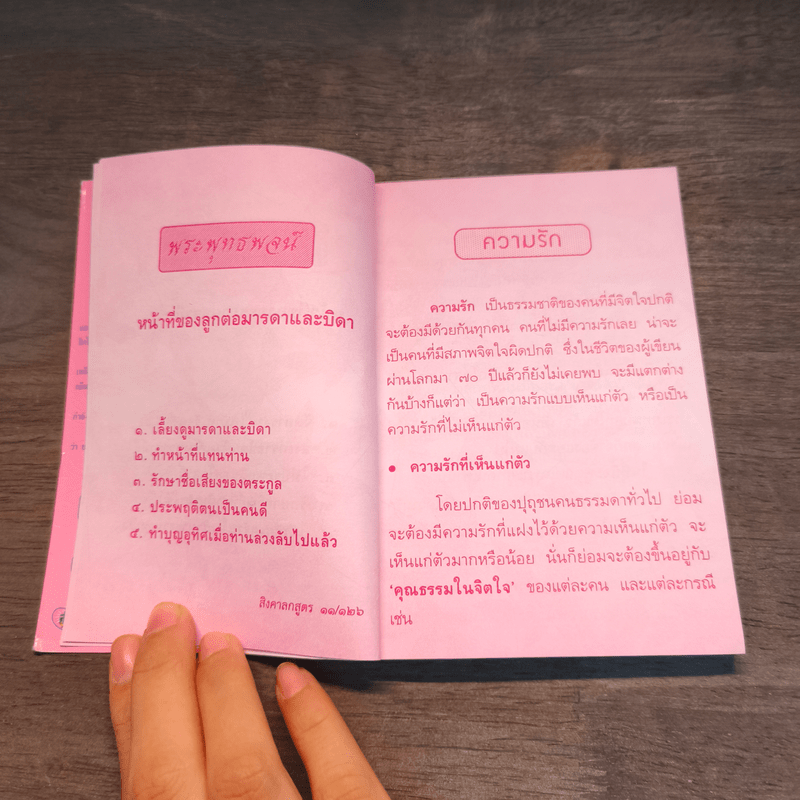 พระพุทธพจน์
หน้าที่ของลูกต่อมารดาและบิดา
๑. เลี้ยงดูมารดาและบิดา
๒. ทำหน้าที่แทนท่าน
๓. รักษาชื่อเสียงของตระกูล
๔. ประพฤติตนเป็นคนดี
๕. ทำบุญอุทิศเมื่อท่านล่วงลับไปแล้ว
สิงคาลกสูตร ๑๑/๑๒๖
ความรัก
ความรัก เป็นธรรมชาติของคนที่มีจิตใจปกติ
จะต้องมีด้วยกันทุกคน คนที่ไม่มีความรักเลย น่าจะ
เป็นคนที่มีสภาพจิตใจผิดปกติ ซึ่งในชีวิตของผู้เขียน
ผ่านโลกมา ๗๐ ปีแล้วก็ยังไม่เคยพบ จะมีแตกต่าง
กันบ้างก็แต่ว่า เป็นความรักแบบเห็นแก่ตัว หรือเป็น
ความรักที่ไม่เห็นแก่ตัว
• ความรักที่เห็นแก่ตัว
โดยปกติของปุถุชนคนธรรมดาทั่วไป ย่อม
จะต้องมีความรักที่แฝงไว้ด้วยความเห็นแก่ตัว จะ
เห็นแก่ตัวมากหรือน้อย นั่นก็ย่อมจะต้องขึ้นอยู่กับ
‘คุณธรรมในจิตใจ’ ของแต่ละคน และแต่ละกรณี
เช่น